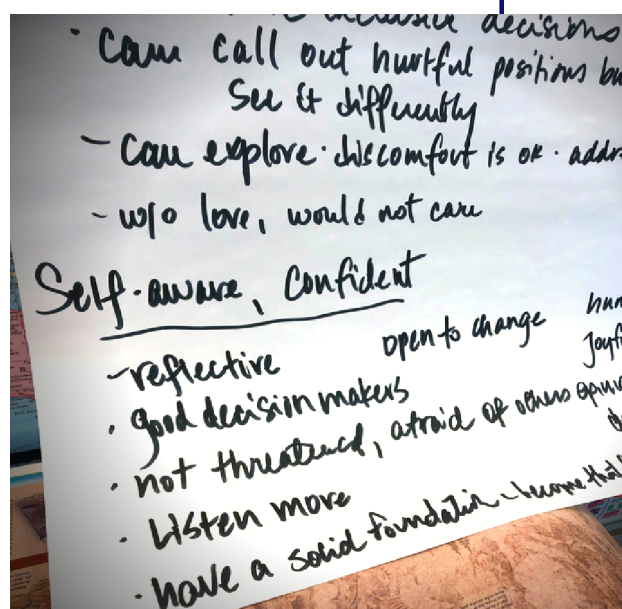 inclusive decisions
· can call out hurtful positions bu
See it differently
- can explore · discomfort is ok · addr
- w/o love, would not care
Self-aware, Confident
- reflective
open to change
hum
Joyf
· good decision makers
· not threatened, afraid of others opini
· Listen more
· have a solid foundation - become that